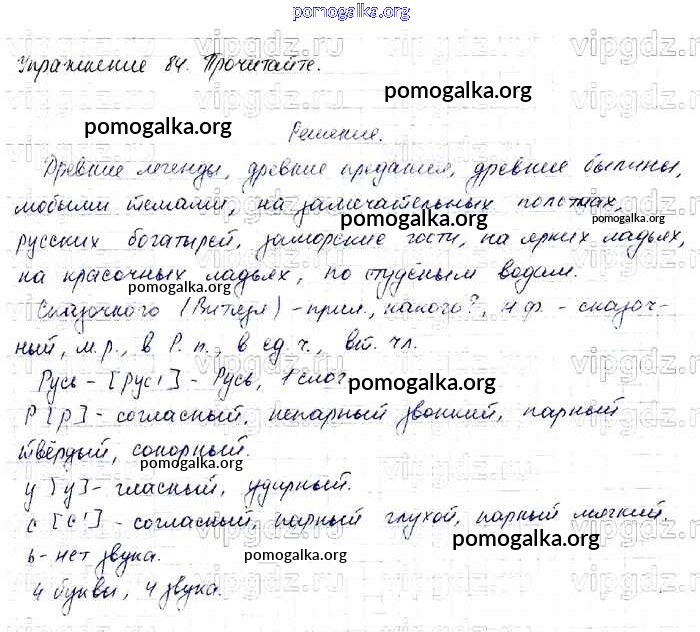 pomogalka.org
Упражнение 84. Прочитайте.
pomogalka.org
pomogalka.org
Решение.
Древние легенды, древние предания, древние былины,
любыми темами, на замечательных полотнах,
pomogalka.org
pomogalka.org
русских богатырей, заморские гости, на ярких ладьях,
на красочных ладьях, по студёным водам.
pomogalka.org
Сказочного (Витязя) – прил., какого?, н.ф. – сказоч-
ный, м.р., в Р.п., в ед.ч., вт. чл.
Русь – [рус'] – Русь, 1 слог
pomogalka.org
Р [р] – согласный, непарный звонкий, парный
твёрдый, сонорный.
pomogalka.org
у [у] – гласный, ударный.
с [с'] – согласный, парный глухой, парный мягкий.
pomogalka.org
ь – нет звука.
pomogalka.org
4 буквы, 4 звука.